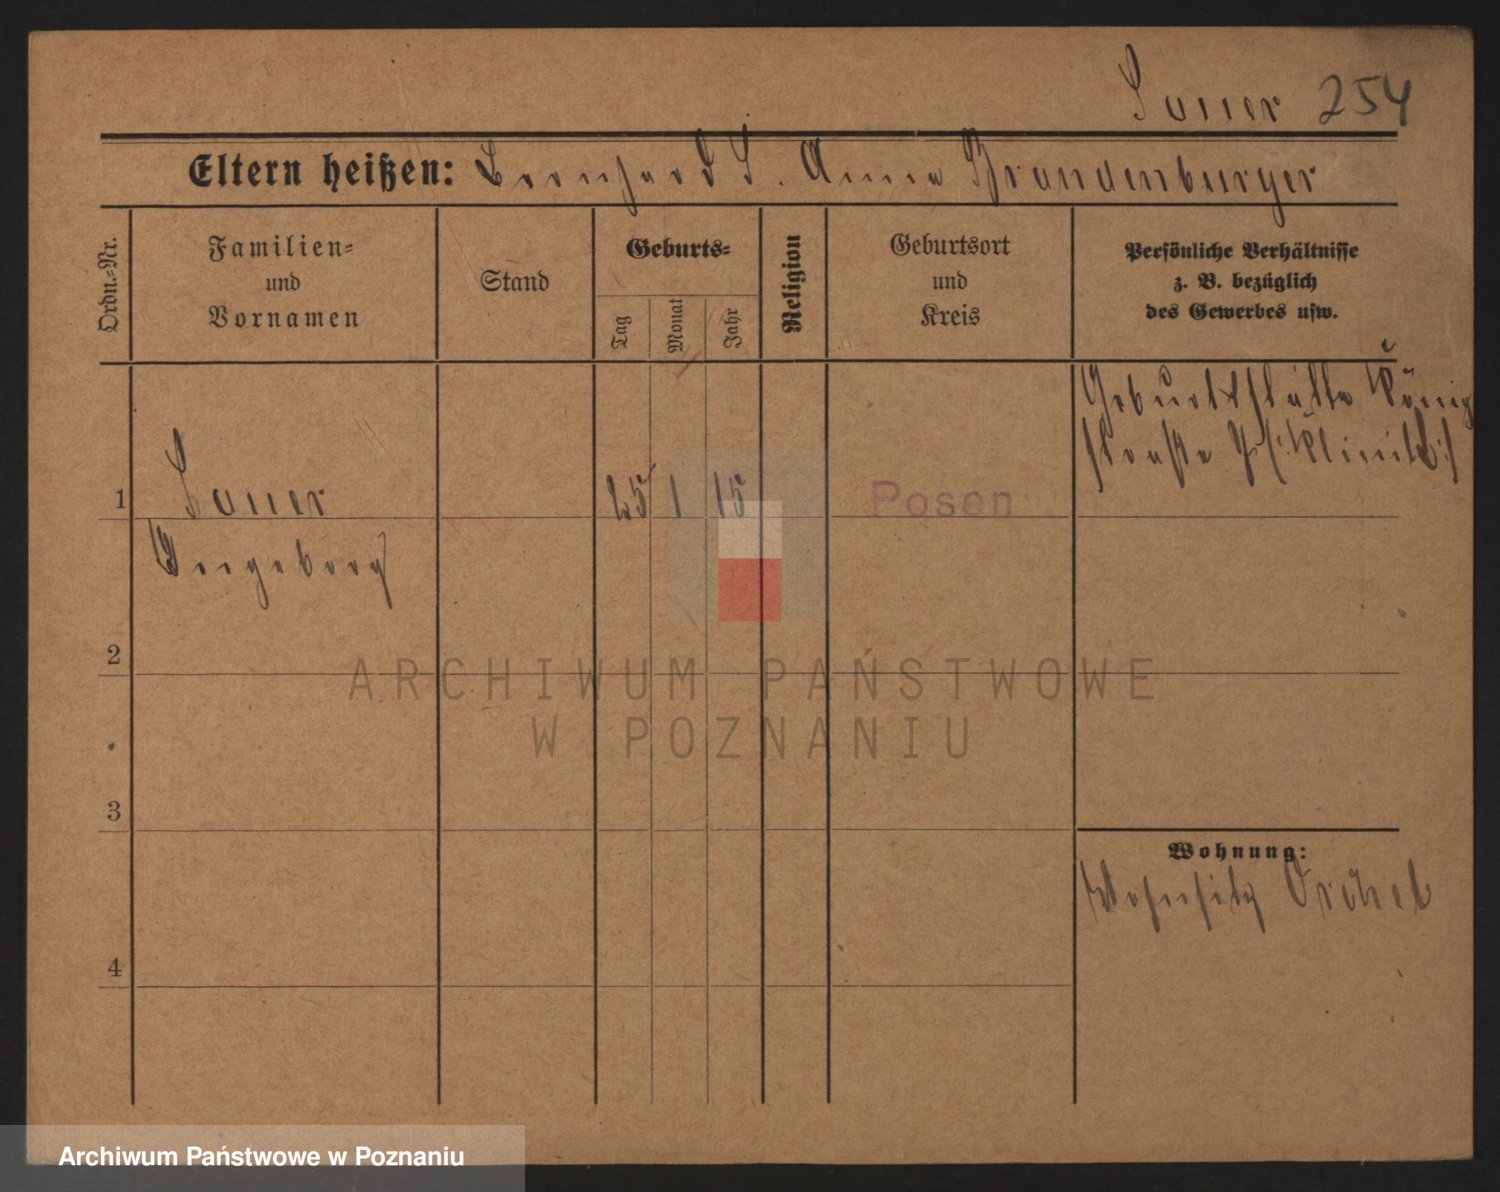 Sauer 254
Eltern heißen: Bernhard S. Anna Brandenburger
Ordn.-Nr.
Familien-
und
Vornamen
Stand
Geburts-
Tag
Monat
Jahr
Religion
Geburtsort
und
Kreis
Persönliche Verhältnisse
z. B. bezüglich
des Gewerbes usw.
Geburtsstätte König
straße
1 Sauer 25 1 15 Posen
Ingeborg
2
3
4
Wohnung:
Wohnsitz
ARCHIWUM PAŃSTWOWE
W POZNANIU
Archiwum Państwowe w Poznaniu